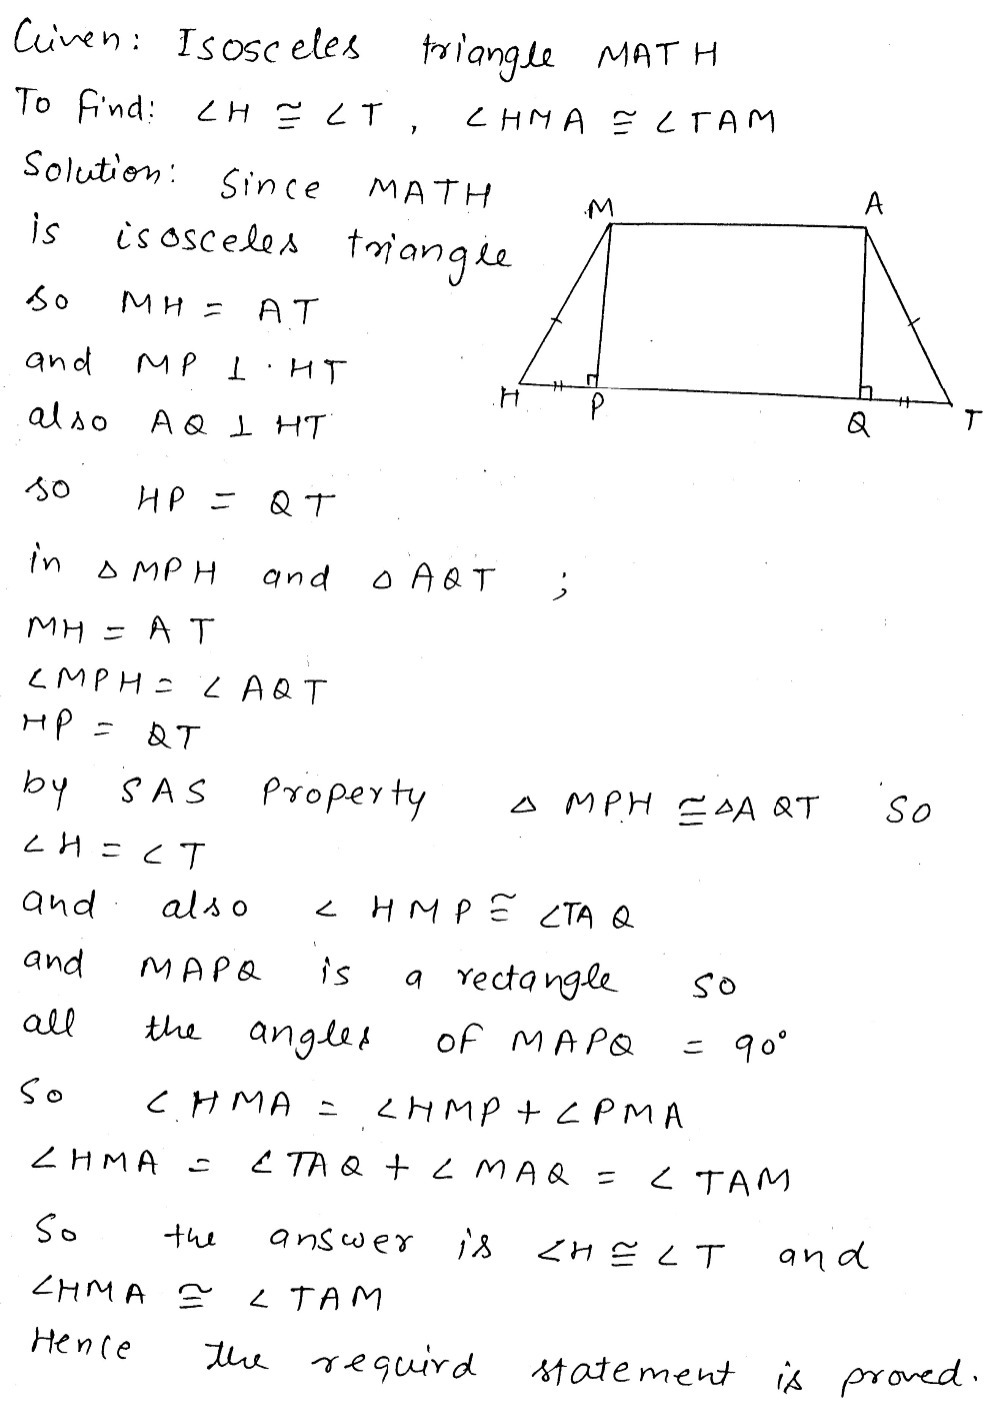 Given: Isosceles triangle MATH
To find: ∠H ≅ ∠T, ∠HMA ≅ ∠TAM
Solution: Since MATH
is isosceles triangle
so MH = AT
and MP ⊥ HT
also AQ ⊥ HT
so HP = QT
in △MPH and △AQT ;
MH = AT
∠MPH = ∠AQT
HP = QT
by SAS Property △ MPH ≅ △AQT so
∠H = ∠T
and also ∠HMP ≅ ∠TAQ
and MAPQ is a rectangle so
all the angles of MAPQ = 90°
So ∠HMA = ∠HMP + ∠PMA
∠HMA = ∠TAQ + ∠MAQ = ∠TAM
So the answer is ∠H ≅ ∠T and
∠HMA ≅ ∠TAM
Hence the requird statement is proved.
M A
H P Q T